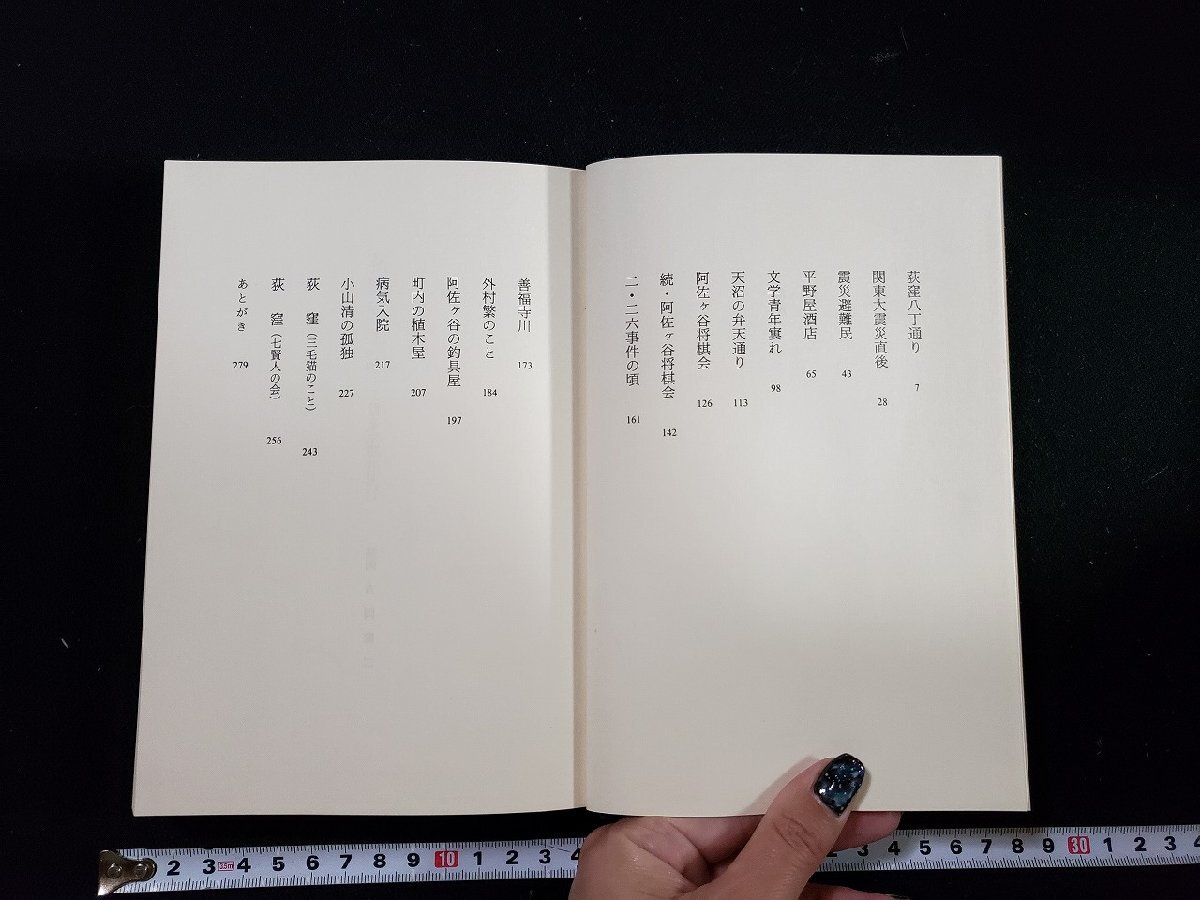 荻窪八丁通り 7
関東大震災直後 28
震災避難民 43
平野屋酒店 65
文学青年窶れ 98
天沼の弁天通り 113
阿佐ヶ谷将棋会 126
続・阿佐ヶ谷将棋会 142
二・二六事件の頃 161
善福寺川 173
外村繁のこと 184
阿佐ヶ谷の釣具屋 197
町内の植木屋 207
病気入院 217
小山清の孤独 225
荻窪（三毛猫のこと） 243
荻窪（七賢人の会） 256
あとがき 279
2 3 3.5m 4 5 6 7 8 9 10 1 2 3 4
2 3 4 5 6 7 8 9 30 1 2 3